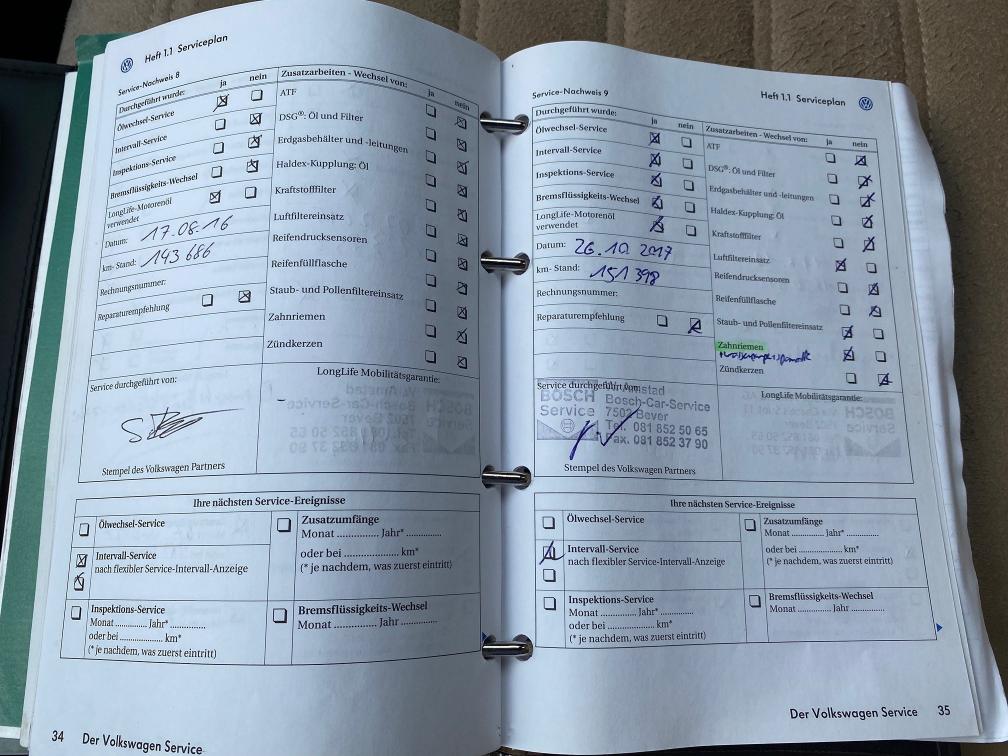 Heft 1.1 Serviceplan
Service-Nachweis 8
Durchgeführt wurde: ja nein
Ölwechsel-Service
Intervall-Service
Inspektions-Service
Bremsflüssigkeits-Wechsel
LongLife-Motorenöl
verwendet
Datum: 17.08.16
km- Stand: 143 686
Rechnungsnummer:
Reparaturempfehlung
Zusatzarbeiten - Wechsel von: ja nein
ATF
DSG®: Öl und Filter
Erdgasbehälter und -leitungen
Haldex-Kupplung: Öl
Kraftstofffilter
Luftfiltereinsatz
Reifendrucksensoren
Reifenfüllflasche
Staub- und Pollenfiltereinsatz
Zahnriemen
Zündkerzen
Service durchgeführt von:
LongLife Mobilitätsgarantie:
Stempel des Volkswagen Partners
Ihre nächsten Service-Ereignisse
Ölwechsel-Service
Intervall-Service
nach flexibler Service-Intervall-Anzeige
Inspektions-Service
Monat ............ Jahr* ............
oder bei .................... km*
(* je nachdem, was zuerst eintritt)
Zusatzumfänge
Monat ............ Jahr* ............
oder bei .................... km*
(* je nachdem, was zuerst eintritt)
Bremsflüssigkeits-Wechsel
Monat ............ Jahr ............
34 Der Volkswagen Service
Service-Nachweis 9
Heft 1.1 Serviceplan
Durchgeführt wurde: ja nein
Ölwechsel-Service
Intervall-Service
Inspektions-Service
Bremsflüssigkeits-Wechsel
LongLife-Motorenöl
verwendet
Datum: 26.10.2017
km- Stand: 151 398
Rechnungsnummer:
Reparaturempfehlung
Zusatzarbeiten - Wechsel von: ja nein
ATF
DSG®: Öl und Filter
Erdgasbehälter und -leitungen
Haldex-Kupplung: Öl
Kraftstofffilter
Luftfiltereinsatz
Reifendrucksensoren
Reifenfüllflasche
Staub- und Pollenfiltereinsatz
Zahnriemen
Zündkerzen
Service durchgeführt von:
BOSCH
Service
Bosch-Car-Service
7502 Bever
Tel. 081 852 50 65
Fax. 081 852 37 90
LongLife Mobilitätsgarantie:
Stempel des Volkswagen Partners
Ihre nächsten Service-Ereignisse
Ölwechsel-Service
Intervall-Service
nach flexibler Service-Intervall-Anzeige
Inspektions-Service
Monat ............ Jahr* ............
oder bei .................... km*
(* je nachdem, was zuerst eintritt)
Zusatzumfänge
Monat ............ Jahr* ............
oder bei .................... km*
(* je nachdem, was zuerst eintritt)
Bremsflüssigkeits-Wechsel
Monat ............ Jahr ............
Der Volkswagen Service 35